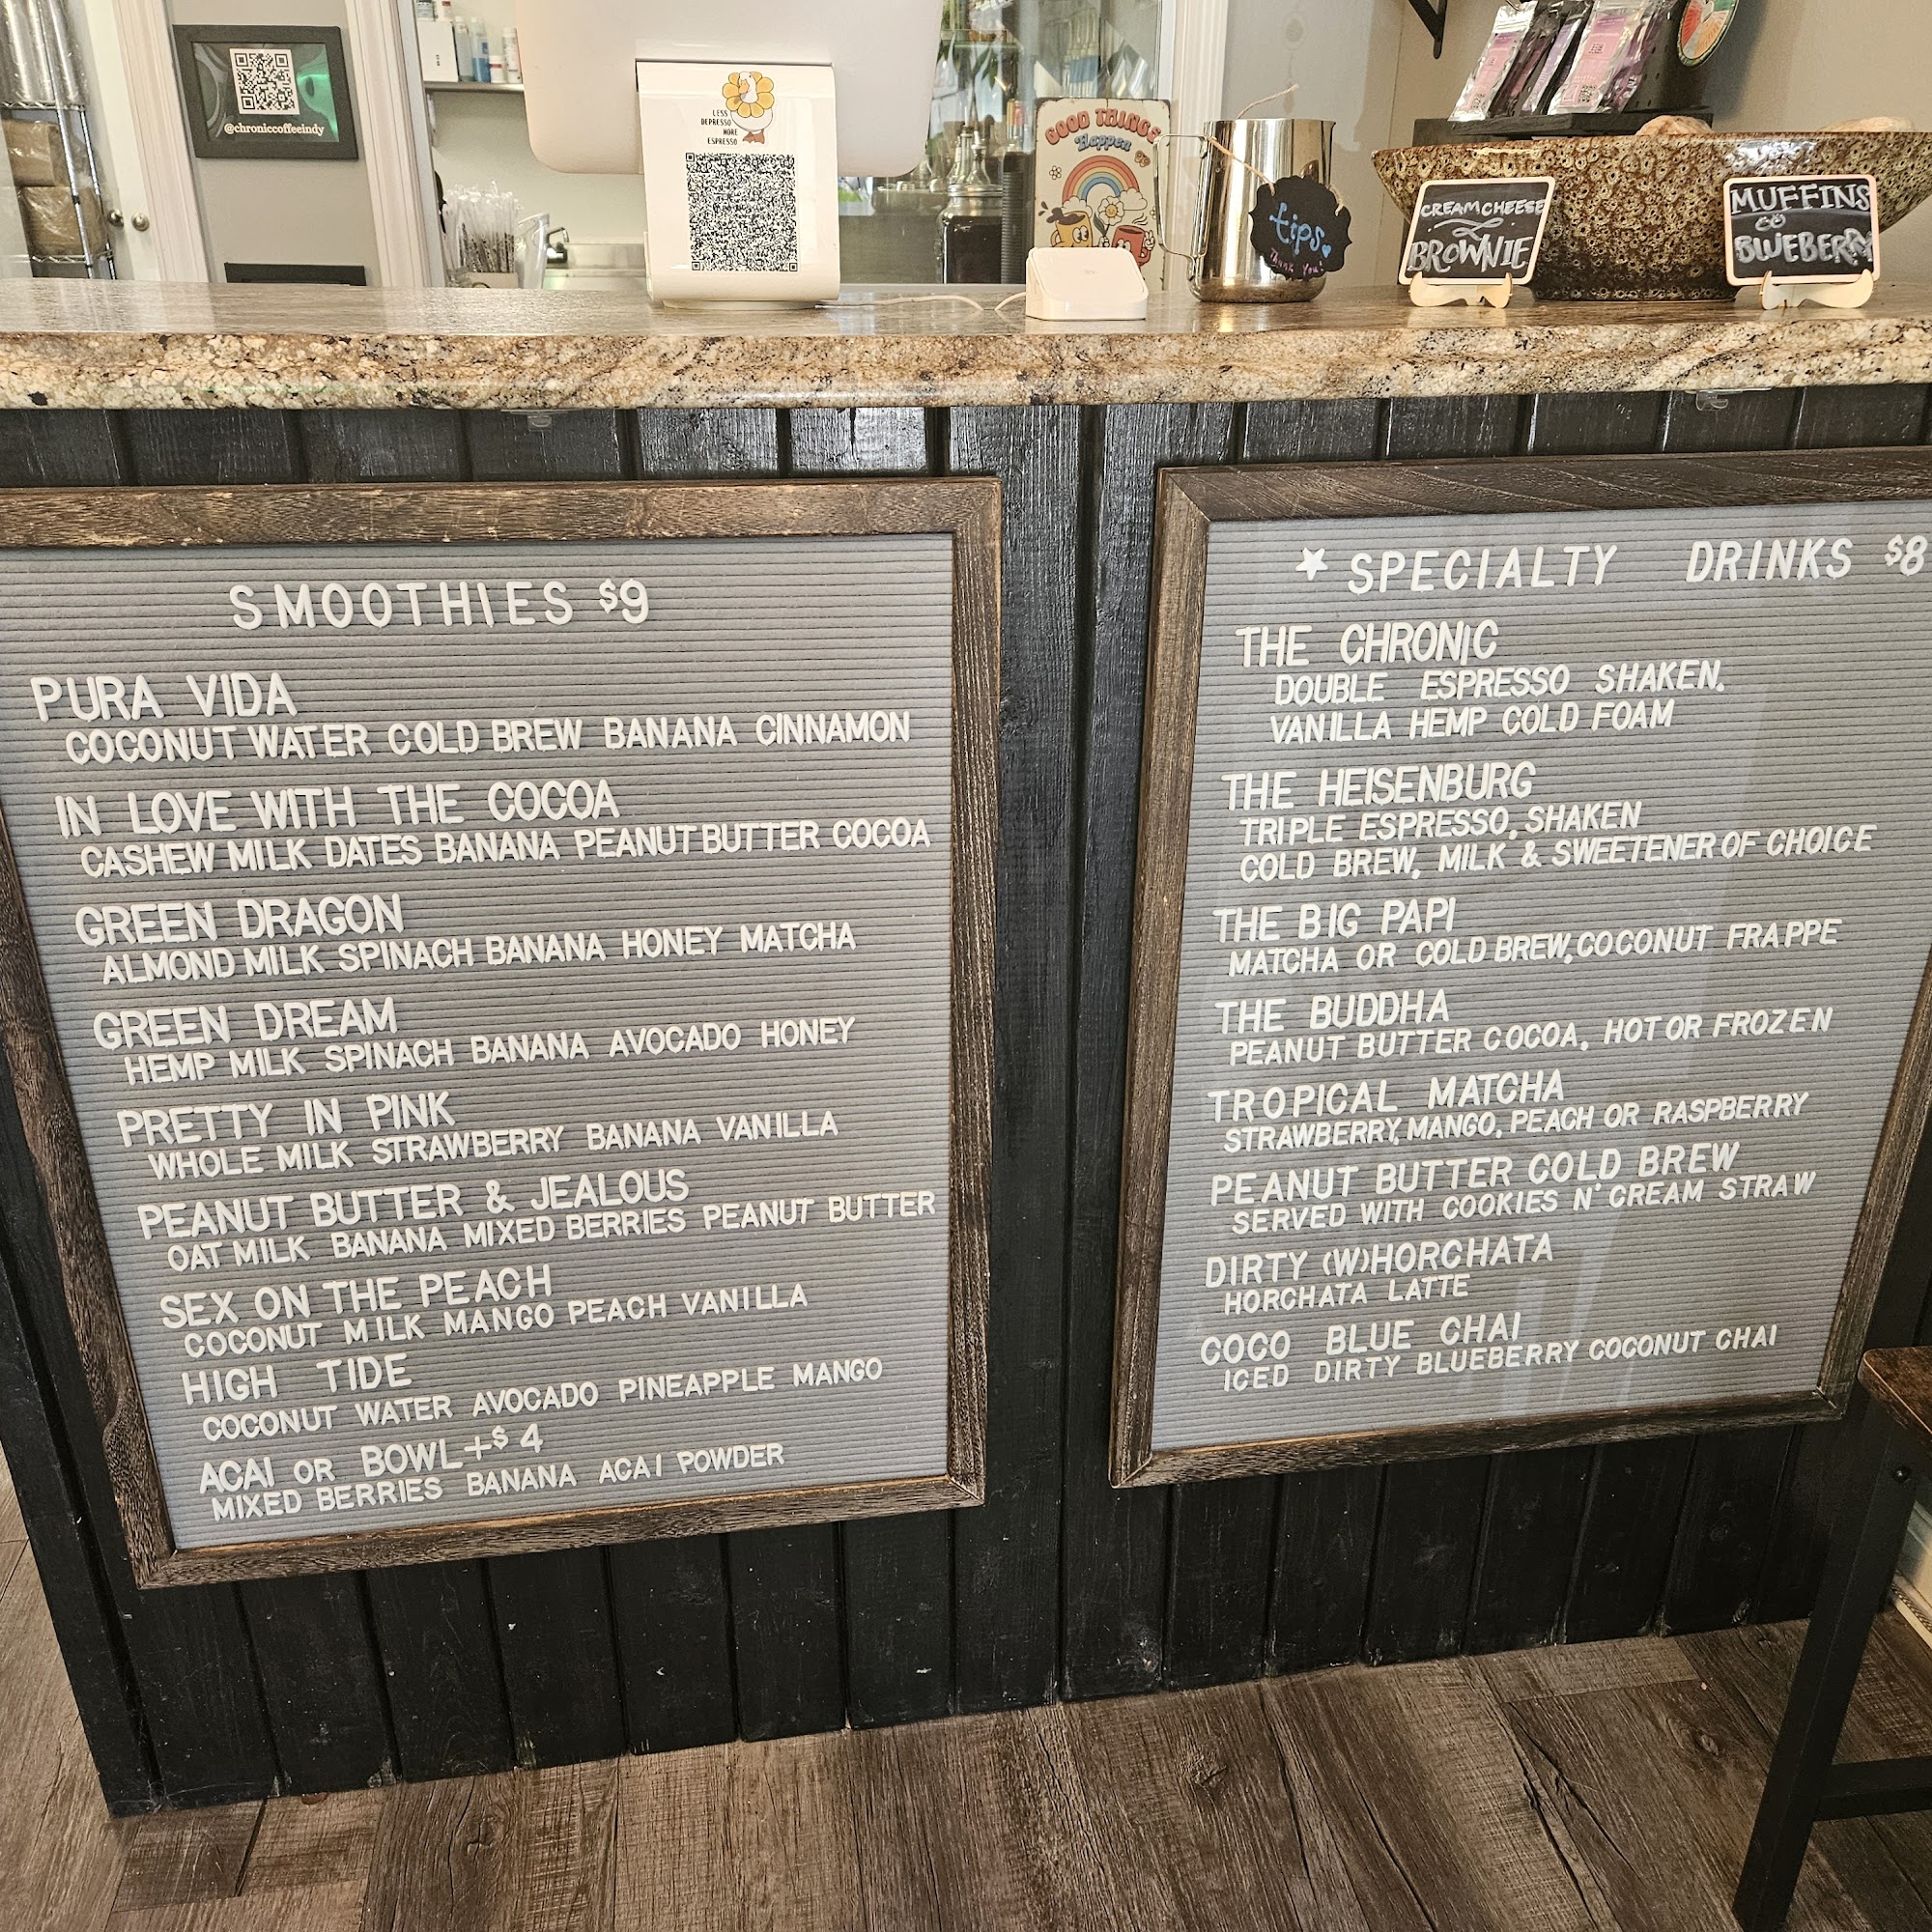 @chroniccoffeeindy
LESS
DEPRESSO
MORE
ESPRESSO
GOOD THINGS
Happen
tips
Thank You!
CREAM CHEESE
BROWNIE
MUFFINS
BLUEBERRY
SMOOTHIES $9
PURA VIDA
COCONUT WATER COLD BREW BANANA CINNAMON
IN LOVE WITH THE COCOA
CASHEW MILK DATES BANANA PEANUT BUTTER COCOA
GREEN DRAGON
ALMOND MILK SPINACH BANANA HONEY MATCHA
GREEN DREAM
HEMP MILK SPINACH BANANA AVOCADO HONEY
PRETTY IN PINK
WHOLE MILK STRAWBERRY BANANA VANILLA
PEANUT BUTTER & JEALOUS
OAT MILK BANANA MIXED BERRIES PEANUT BUTTER
SEX ON THE PEACH
COCONUT MILK MANGO PEACH VANILLA
HIGH TIDE
COCONUT WATER AVOCADO PINEAPPLE MANGO
ACAI OR BOWL +$4
MIXED BERRIES BANANA ACAI POWDER
SPECIALTY DRINKS $8
THE CHRONIC
DOUBLE ESPRESSO SHAKEN.
VANILLA HEMP COLD FOAM
THE HEISENBURG
TRIPLE ESPRESSO, SHAKEN
COLD BREW, MILK & SWEETENER OF CHOICE
THE BIG PAPI
MATCHA OR COLD BREW, COCONUT FRAPPE
THE BUDDHA
PEANUT BUTTER COCOA, HOT OR FROZEN
TROPICAL MATCHA
STRAWBERRY, MANGO, PEACH OR RASPBERRY
PEANUT BUTTER COLD BREW
SERVED WITH COOKIES N' CREAM STRAW
DIRTY (W)HORCHATA
HORCHATA LATTE
COCO BLUE CHAI
ICED DIRTY BLUEBERRY COCONUT CHAI